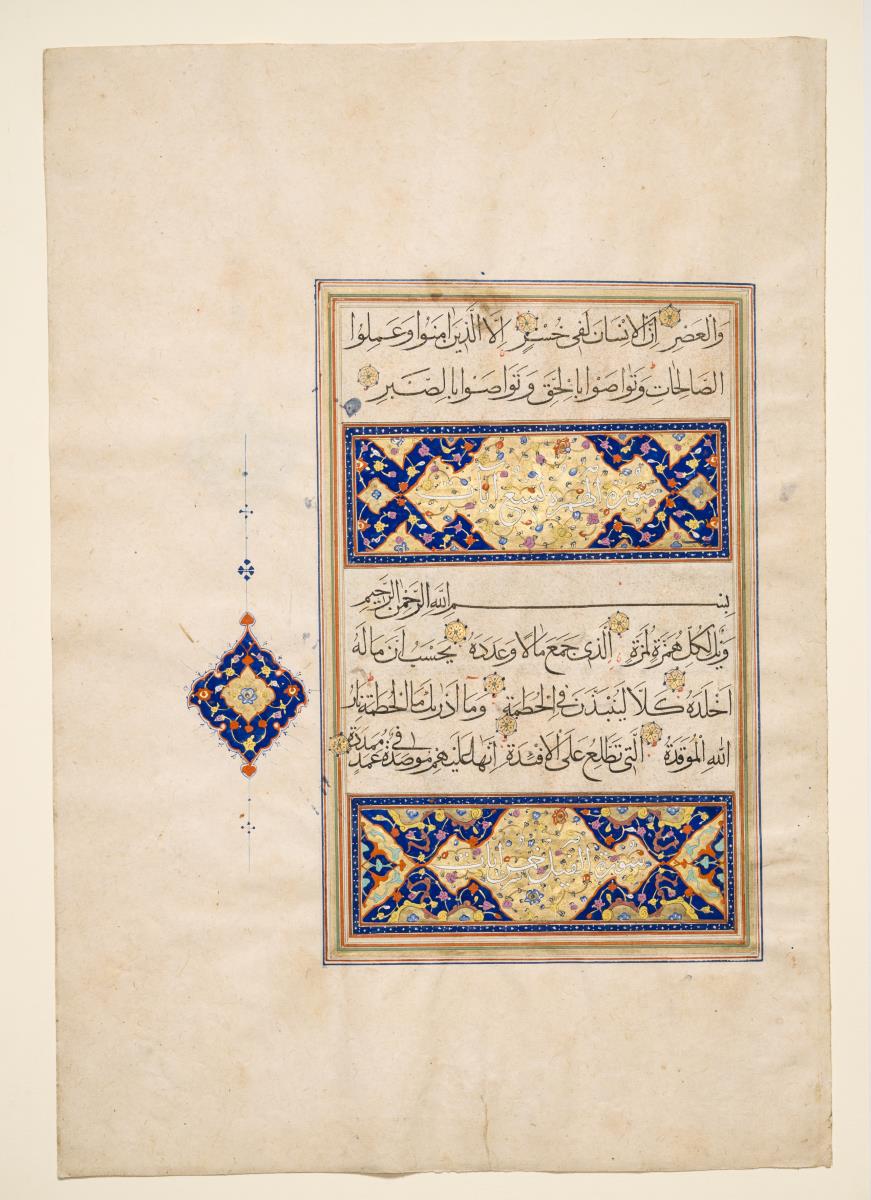 وَالْعَصْرِ اِنَّ الْاِنْسَانَ لَفِى خُسْرٍ اِلَّا الَّذِينَ اٰمَنُوا وَعَمِلُوا
الصَّالِحَاتِ وَتَوَاصَوْا بِالْحَقِّ وَتَوَاصَوْا بِالصَّبْرِ
سورة الهمزة تسع آيات
بِسْمِ اللّٰهِ الرَّحْمٰنِ الرَّحِيمِ
وَيْلٌ لِكُلِّ هُمَزَةٍ لُمَزَةٍ الَّذِى جَمَعَ مَالًا وَعَدَّدَهُ يَحْسَبُ اَنَّ مَالَهُ
اَخْلَدَهُ كَلَّا لَيُنْبَذَنَّ فِى الْحُطَمَةِ وَمَا اَدْرٰيكَ مَا الْحُطَمَةُ نَارُ
اللّٰهِ الْمُوقَدَةُ الَّتِى تَطَّلِعُ عَلَى الْاَفْئِدَةِ اِنَّهَا عَلَيْهِمْ مُوصَدَةٌ فِى عَمَدٍ مُمَدَّدَةٍ
سورة الفيل خمس آيات